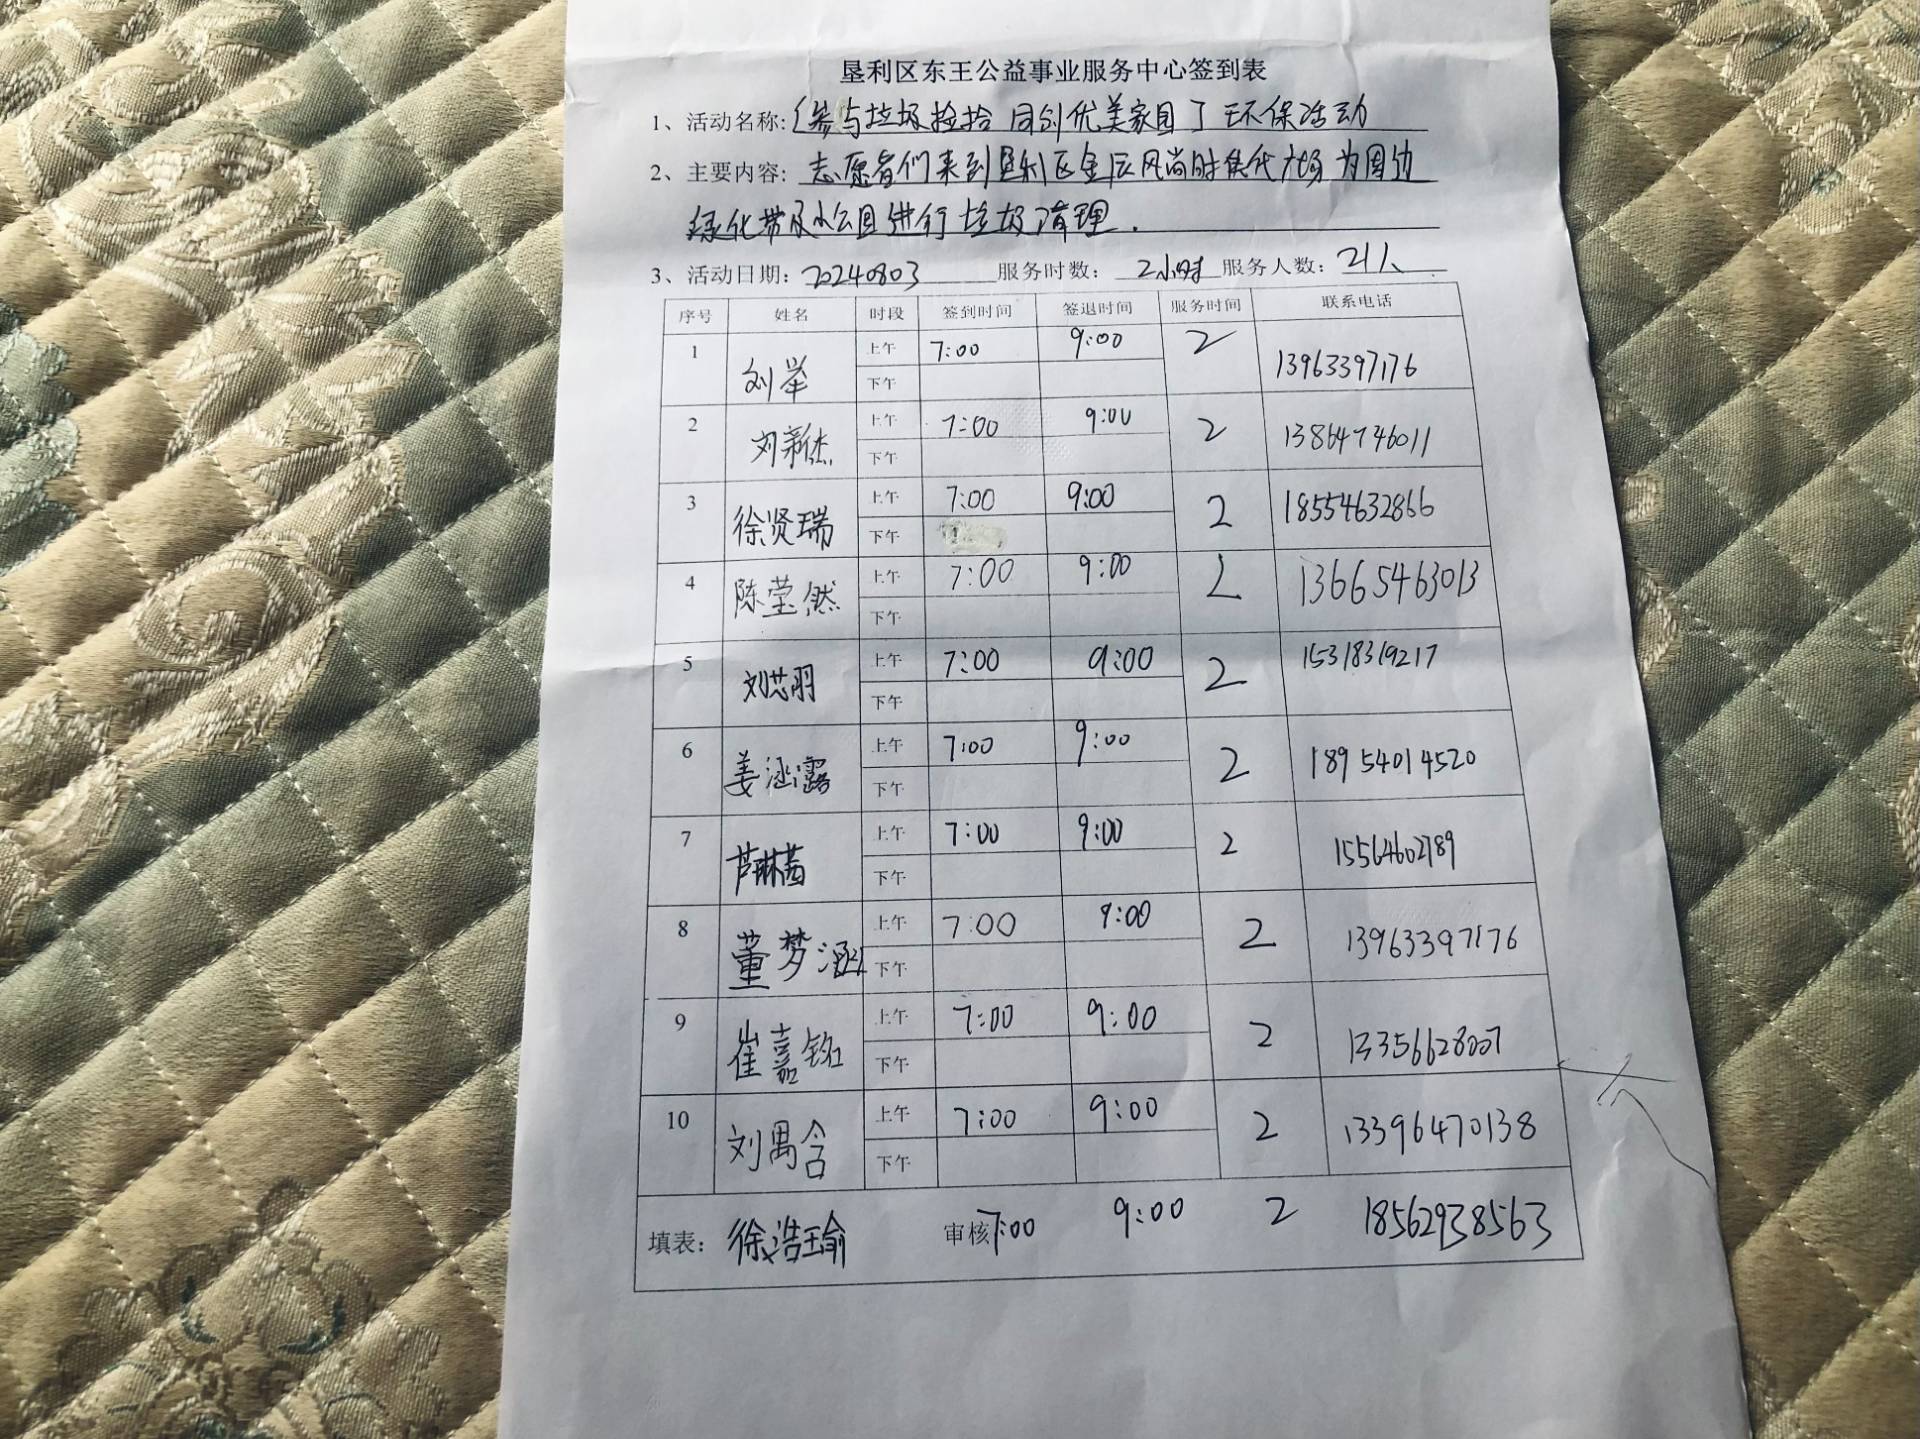 垦利区东王公益事业服务中心签到表
1、活动名称:《参与垃圾捡拾 同创优美家园》环保活动
2、主要内容: 志愿者们来到垦利区金辰风尚时代广场为周边
绿化带及小公园进行垃圾清理.
3、活动日期: 20240803 服务时数: 2小时 服务人数: 21人
序号 姓名 时段 签到时间 签退时间 服务时间 联系电话
1 刘举 上午 7:00 9:00 2 13963397176
下午
2 刘新杰 上午 7:00 9:00 2 13864746011
下午
3 徐贤瑞 上午 7:00 9:00 2 18554632866
下午
4 陈莹然 上午 7:00 9:00 2 13665463013
下午
5 刘芯羽 上午 7:00 9:00 2 15318319217
下午
6 姜涵露 上午 7:00 9:00 2 18954014520
下午
7 芦琳茜 上午 7:00 9:00 2 15564602789
下午
8 董梦涵 上午 7:00 9:00 2 13963397176
下午
9 崔嘉铭 上午 7:00 9:00 2 13356628007
下午
10 刘禺含 上午 7:00 9:00 2 13396470138
下午
填表: 徐浩瑜 审核 7:00 9:00 2 18562938563